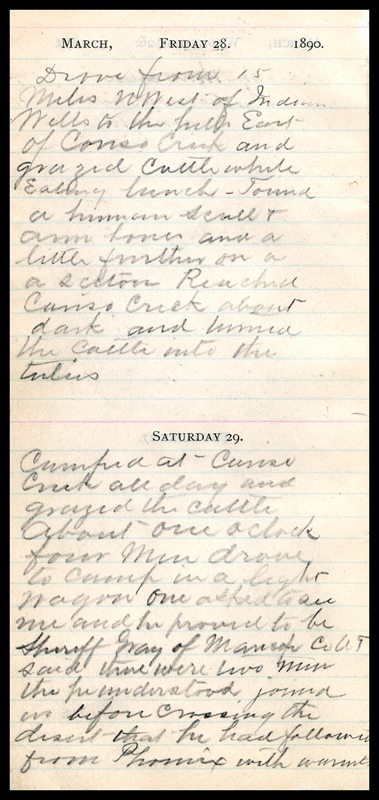 MARCH, FRIDAY 28. 1890.
Drove from 15
Miles N West of Indian
Wells to the hills East
of Cariso Creek and
grazed Cattle while
Eating lunch - Found
a human scull &
arm bones and a
little further on a
a scelton Reached
Cariso Creek about
dark and turned
the Cattle into the
tulies
SATURDAY 29.
Camped at Cariso
Creek all day and
grazed the cattle
About one oclock
four Men drove
to camp in a light
wagon One asked to see
me and he proved to be
Sheriff Gray of Maricopa Co A T
said there were two Men
the he understood joined
us before Crossing the
desert that he had followed
from Phoenix with warrents